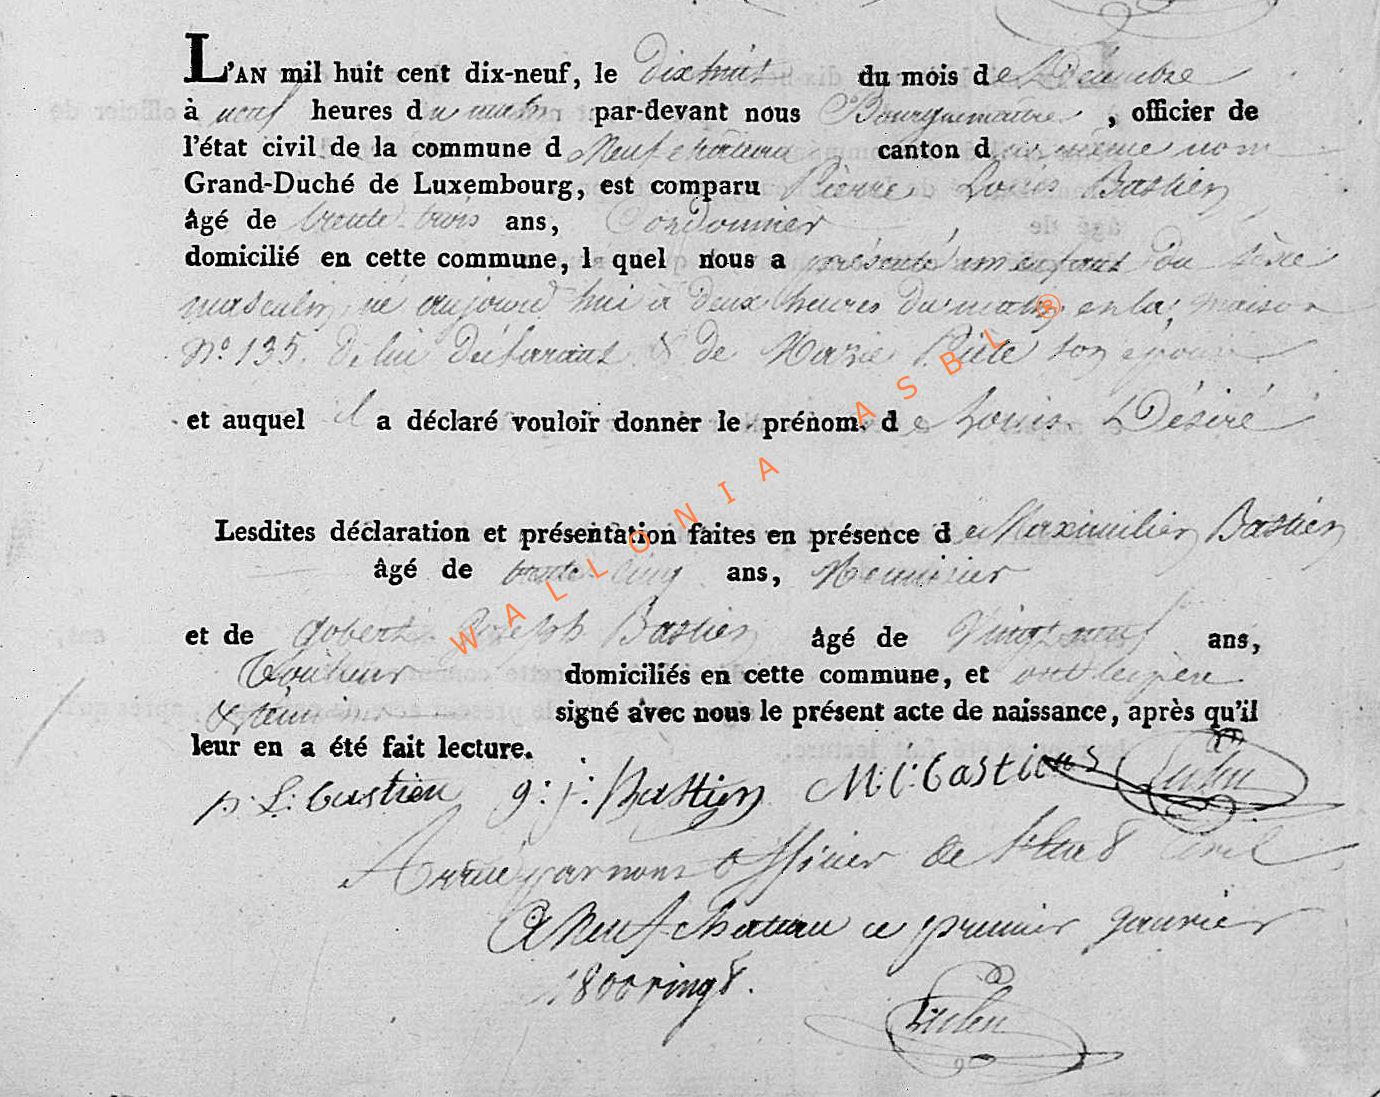 L'AN mil huit cent dix-neuf, le dix huit du mois de Décembre
à neuf heures du matin par-devant nous Bourguemaitre, officier de
l'état civil de la commune d Neufchateau canton du même nom
Grand-Duché de Luxembourg, est comparu Pierre Louis Bastien
âgé de trente-trois ans, Cordonnier
domicilié en cette commune, l quel nous a présenté un enfant du sèxe
masculin né aujourd'hui à deux heures du matin en la maison
N° 135 de lui déclarant & de Marie son épouse
et auquel il a déclaré vouloir donner le prénom de Louis Désiré
Lesdites déclaration et présentation faites en présence de Maximilien Bastien
âgé de trente cinq ans, Menuisier
et de Gobert Joseph Bastien âgé de Vingt neuf ans,
domiciliés en cette commune, et ont le père
& témoins signé avec nous le présent acte de naissance, après qu'il
leur en a été fait lecture.
p: L: Bastien g: j: Bastien M: C: Bastien
Arrêté par nous officier de l'état Civil
à Neufchateau ce premier janvier
1800 vingt.
WALLONIA ASBL ®